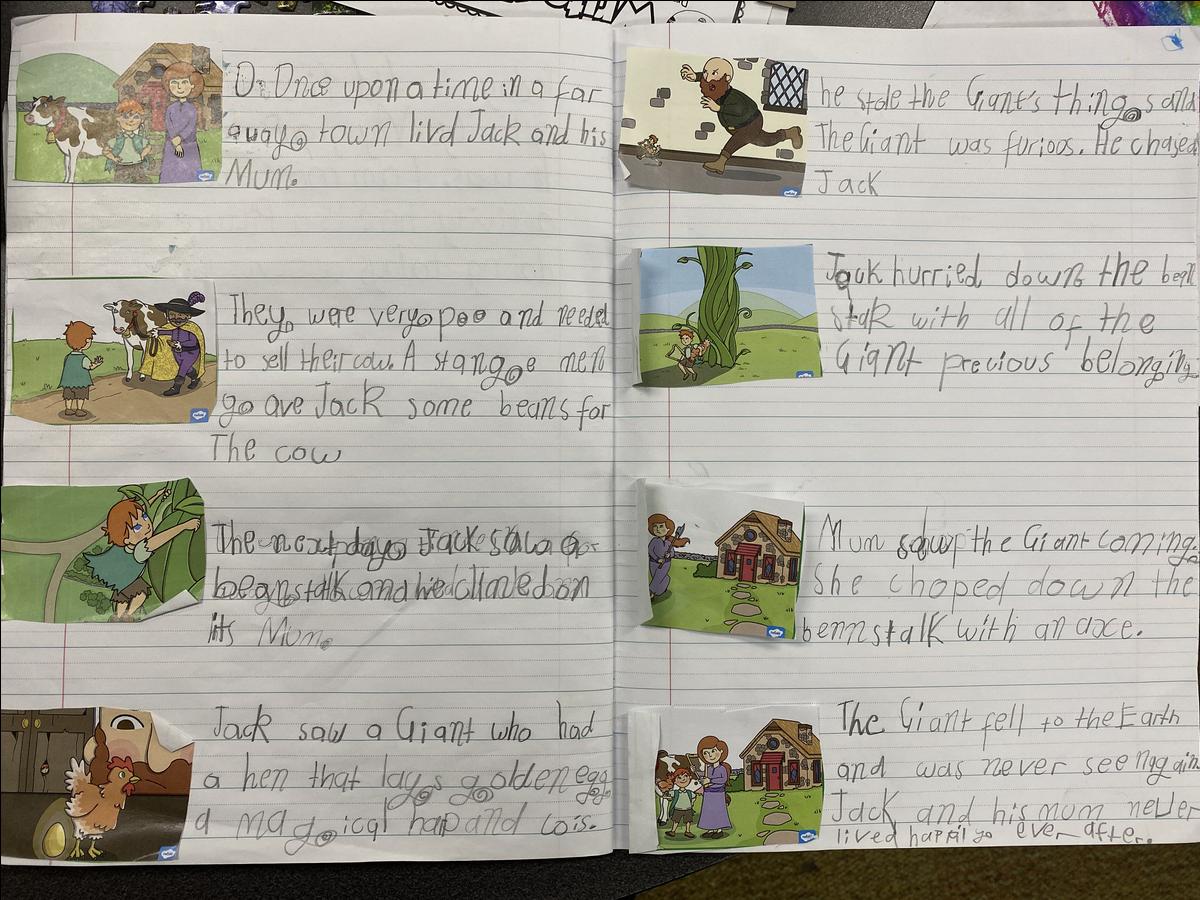 O. Once upon a time in a far
auay town livd Jack and his
Mum.
They were very poo and needed
to sell their cow. A stange men
go ave Jack some beans for
The cow
The next day Jack saw a
beanstalk and he climed on
its Mum.
Jack saw a Giant who had
a hen that lays golden egg
a magical harp and cois.
he stole the Giant's things and
The Giant was furious. He chased
Jack
Jack hurried down the bean
stalk with all of the
Giant precious belonging
Mum saw the Giant coming
She choped down the
bennstalk with an axe.
The Giant fell to the Earth
and was never see nagain
Jack and his mum never
lived happily ever after.